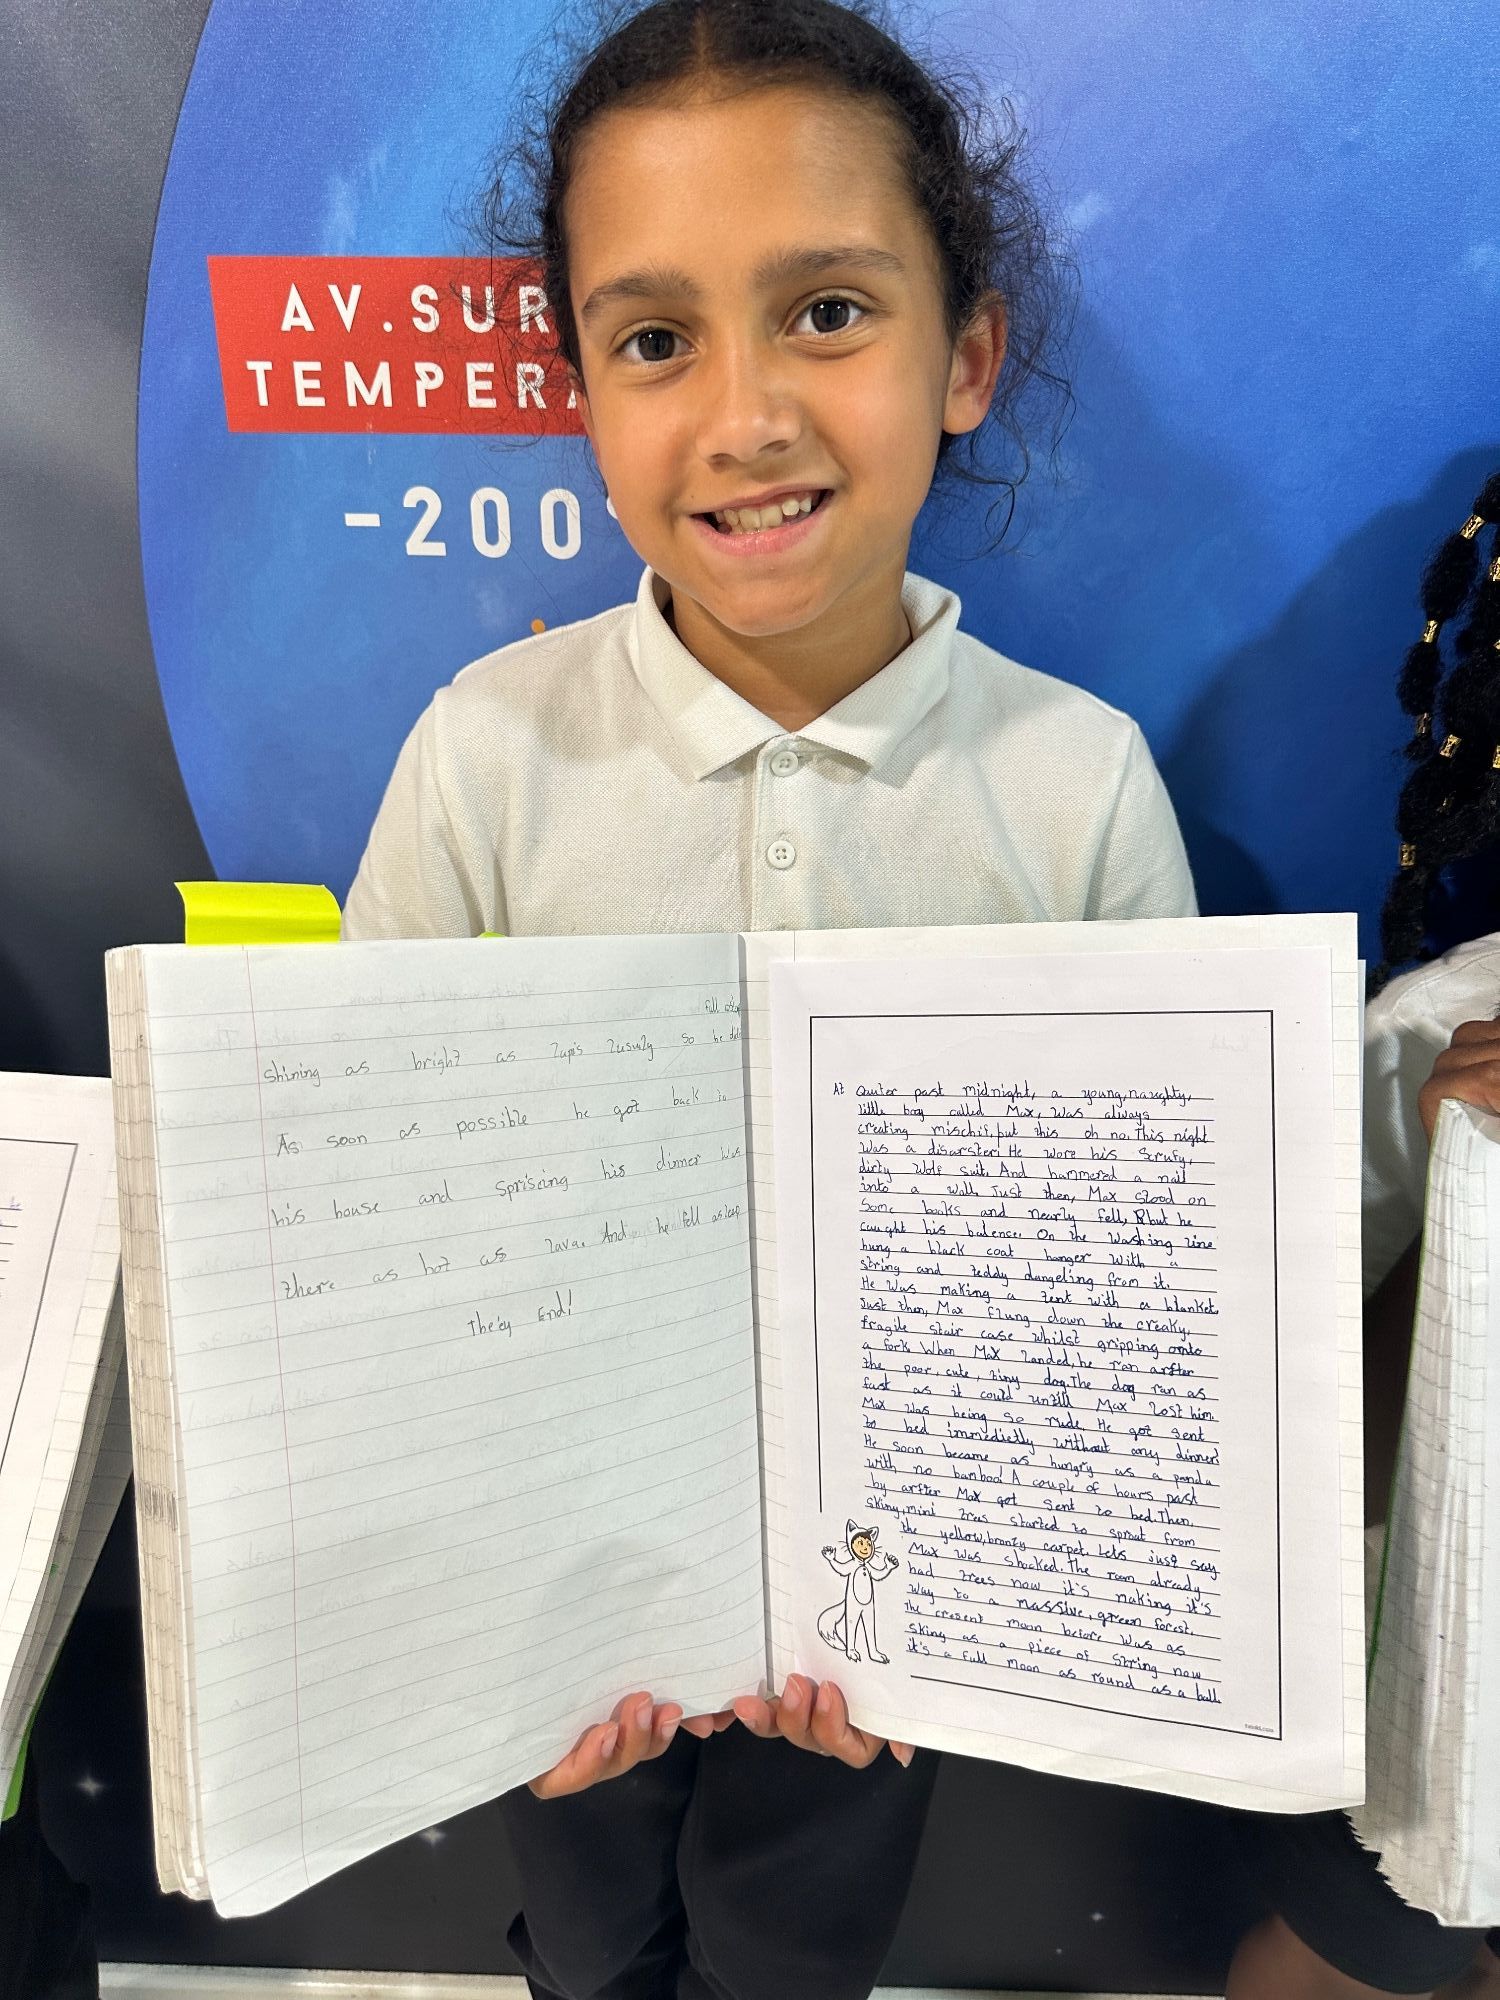 AV.SUR
TEMPERA
-200°
fall aslee
shining as bright as lapis lusuly so he did
As soon as possible he got back in
his house and sprising his dinner was
there as hot as lava. And he fell asleep
The'ey End!
At Quuter past midnight, a young, naughty,
little boy called Max, was always
creating mischif, but this oh no. This night
was a disarster. He wore his scrufy,
dirty wolf suit. And hammered a nail
into a wall. Just then, Max stood on
some books and nearly fell, but he
caught his balence. On the washing line
hung a black coat hanger with a
string and teddy dangeling from it.
He was making a tent with a blanket.
Just then, Max flung down the creaky,
fragile stair case whilst gripping onto
a fork. When Max landed, he ran arfter
the poor, cute, tiny dog. The dog ran as
fast as it could untill Max lost him.
Max was being so rude. He got sent
to bed immedietly without any dinner!
He soon became as hungry as a panda
with no bamboo! A couple of hours past
by arfter Max got sent to bed. Then,
skiny, mini trees started to sprout from
the yellow, bronzy carpet. Lets just say
Max was shocked. The room already
had trees now it's making it's
way to a massive, green forest.
The cresent moon before was as
sking as a piece of string now
it's a full moon as round as a ball.
twinkl.com